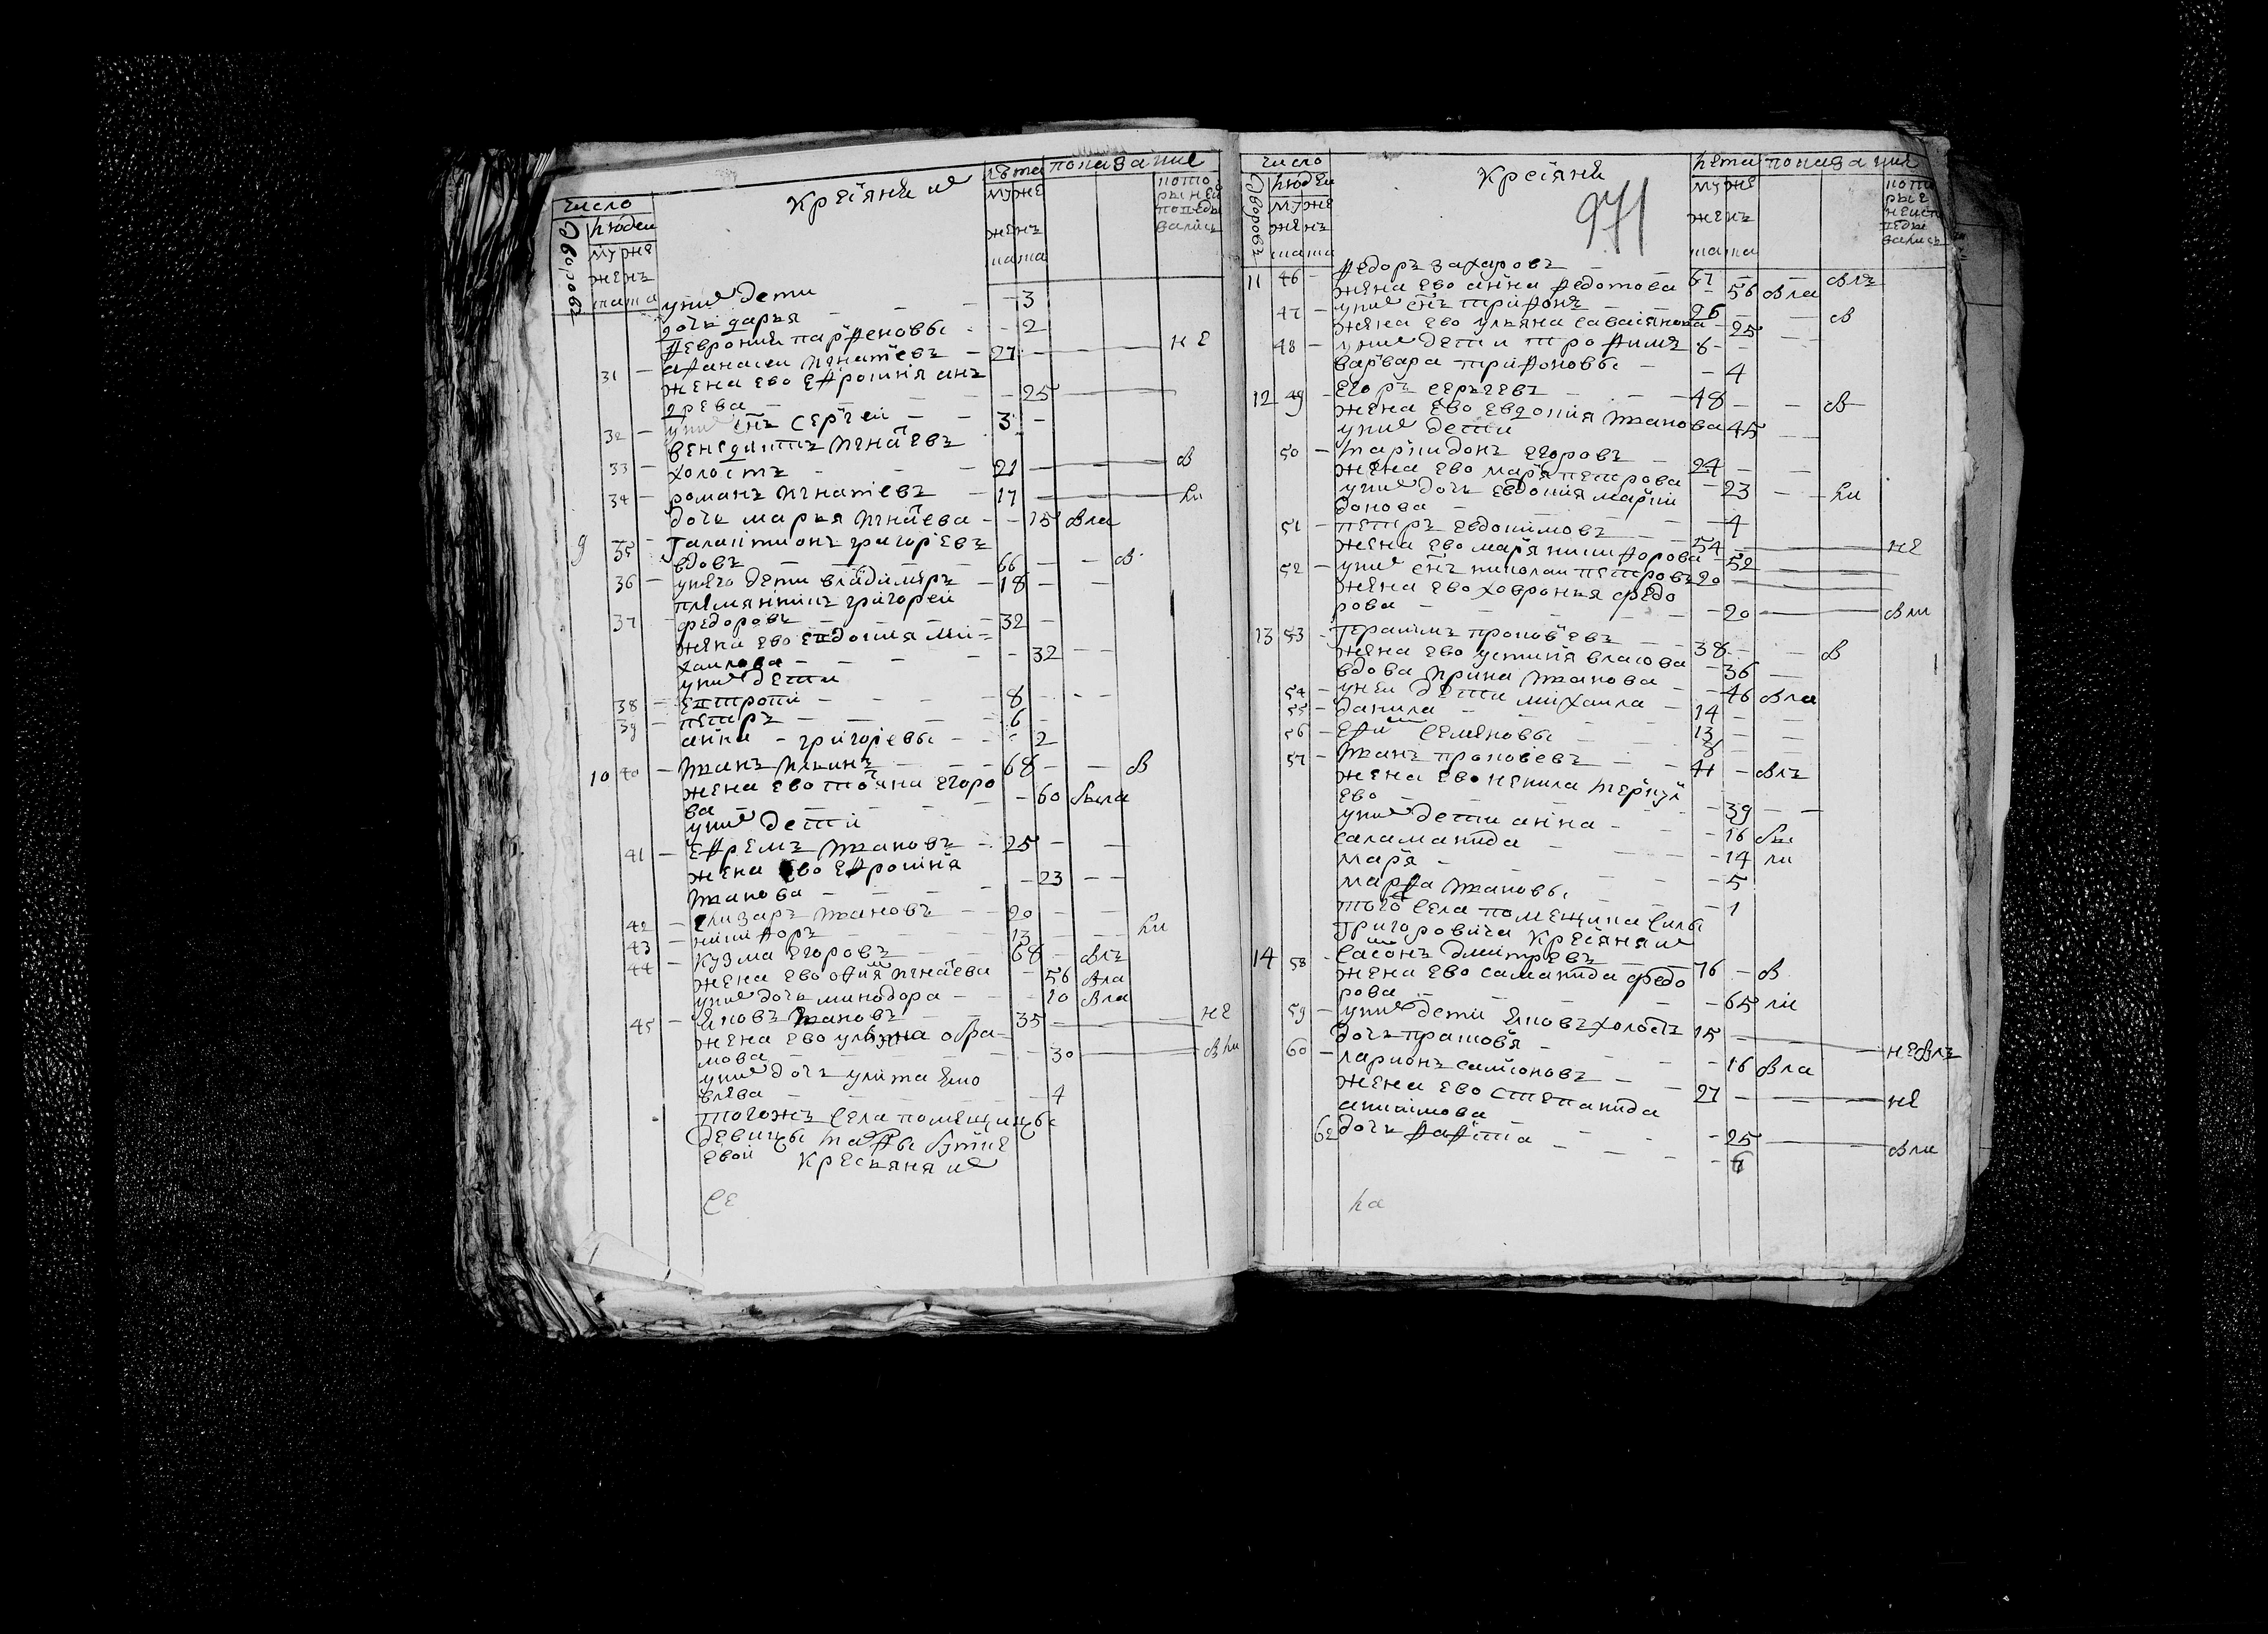 число
людеи
дворовъ
муже
женъ
ска
крестьяня и
лета
муже
женъ
ска
показание
кото
рыи не
поведы
вались
у них дети
дочь дарья - 3
февронии парфеновы - 2
31 - афанасеи игнатиевъ - 27 - не
жена ево ефросиния анъ
древа - 25
32 - у них снъ сергеи - 3 -
венедиктъ игнатиевъ
33 - холостъ - 21 - в
34 - романъ игнатиевъ - 17 - ли
дочь марья игнатиева - 15 вла
9 35 галактионъ григориевъ
вдовъ - 66 - в
36 - у него дети владимиръ - 18 - -
племянникъ григореи
37 - федоровъ - 32 -
жена ево евдокия ми=
хаилова - 32 - -
у них дети
38 - евтропи - 8 - -
39 - петръ - 6 -
анна - григориевы - 2
10 40 - иванъ ильинъ - 68 - - в
жена ево татиана егоро
ва - 60 была
у них дети
41 - ефремъ ивановъ - 25 - -
жена ево ефросиния
иванова - 23 - -
42 - елизаръ ивановъ - 20 - -
43 - никифоръ - 13 - - ли
44 - кузма егоровъ - 68 - влъ
жена ево софия игнатиева - 56 вла
у них дочь минодора - 10 вла
45 - яковъ ивановъ - 35 - не
жена ево ульяна обра=
мова - 30 - вли
у них дочь улита яко
влева - 4
тогожъ села помещицы
девицы
евои крестьяня и
се
число
людеи
дворовъ
муже
женъ
ска
крестьяни
971
лета
муже
женъ
ска
показание
кото
рые
неисп
ведые
вались
11 46 - федоръ захаровъ - 67 - - влъ
жена ево анна федотова - 56 вла
47 - у них снъ трифонъ - 26 - - в
жена ево ульяна савастянова - 25 - -
48 - у них дети трофимъ - 6 -
варвара трифоновы - 4
12 49 - егоръ сергеевъ - 48 - - в
жена ево евдокия иванова 45 - -
у них дети
50 - спиридонъ егоровъ - 24 - -
жена ево марья петрова - 23 - - ли
у них дочь евдокия спири
донова - 4
51 - петръ евдокимовъ - 54 - не
жена ево марья никифорова - 52
52 - у них снъ николаи петровъ 20 -
жена ево ховронья федо
рова - 20 - вли
13 53 - герасимъ прокофьевъ - 38 - - в
жена ево устиния власова - 36 -
вдова ирина иванова - 46 вла
54 - у неи дети михаила - 14 - -
55 - данила - 13 - -
56 - ефим семеновы - 8 -
57 - иванъ прокофиевъ - 41 - влъ
жена ево ненила
ево - 39 - -
у них дети анна - 16 бы
саламанида - 14 ли
марья - 5
марфа ивановы - 1
того села помещика силы
григоровича крестьяня и
14 58 - сасонъ дмитревъ - 76 - в
жена ево саманида федо
рова - 65 ли
59 - у них дети яковъ холостъ 15 - не влъ
дочь прасковя - 16 вла
60 - ларионъ самсоновъ - 27 - не
жена ево степанида
анисимова - 25 - вли
62 дочь - 6
ла